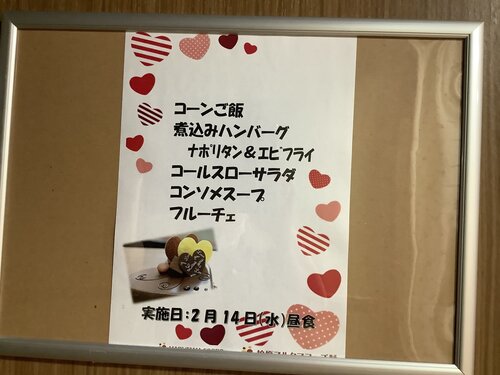 コーンご飯
煮込みハンバーグ
ナポリタン&エビフライ
コールスローサラダ
コンソメスープ
フルーチェ
実施日:2月14日(水)昼食